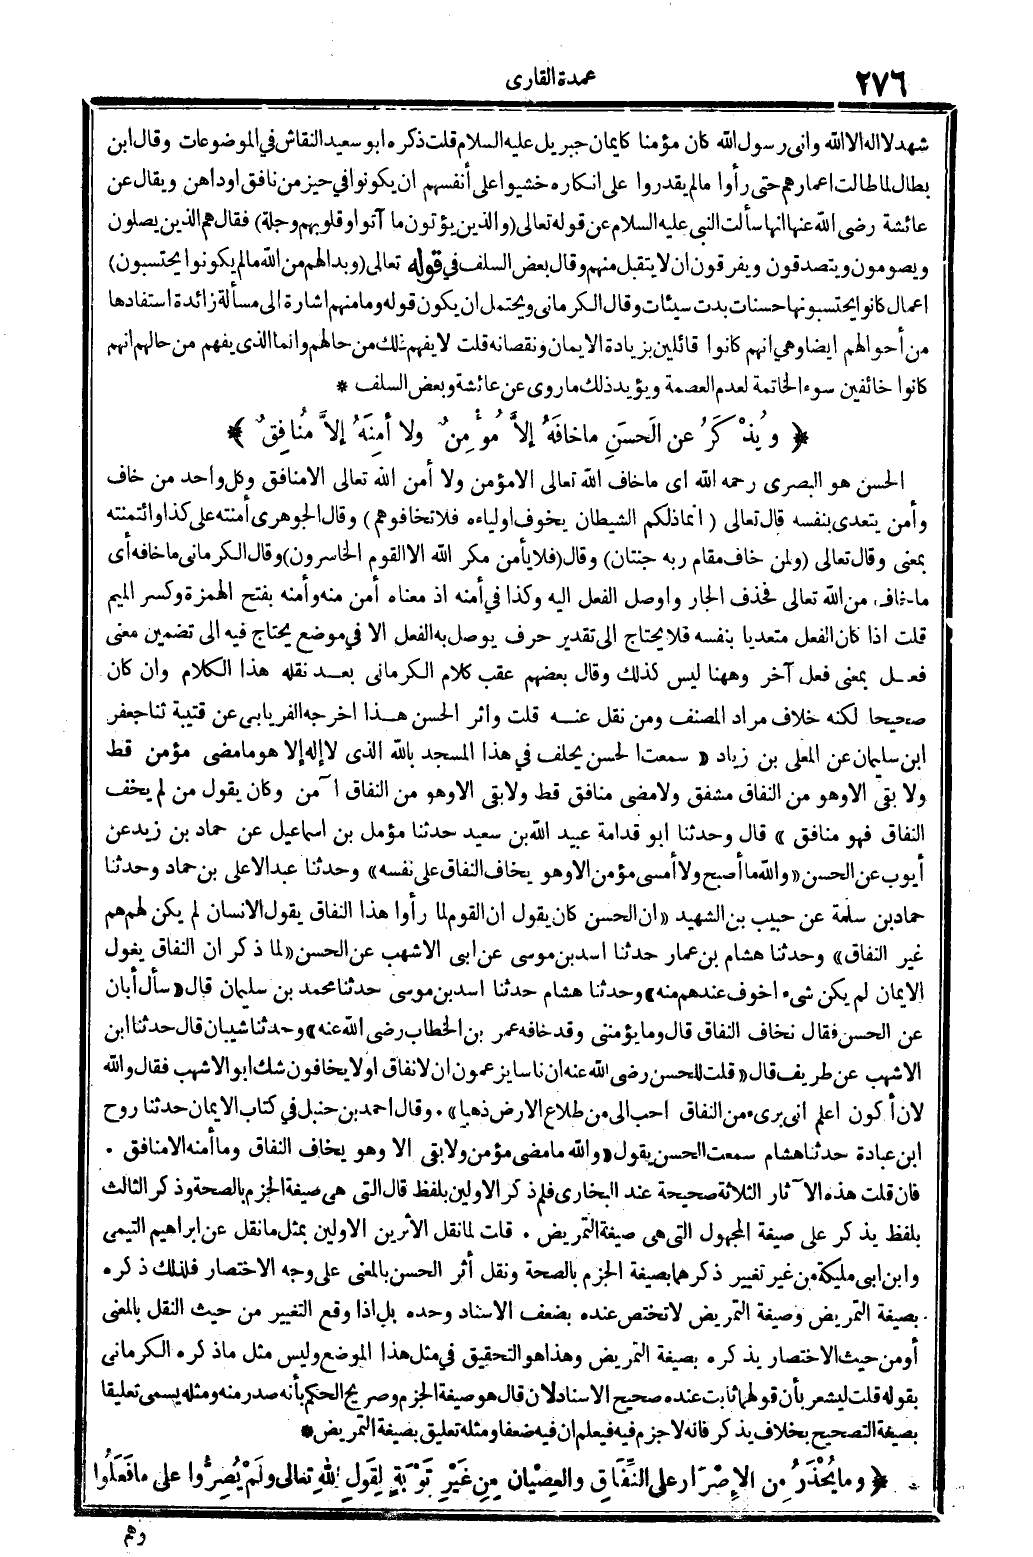 ٢٧٦
عمدة القارى
شهد لا اله الا الله وانى رسول الله كان مؤمنا كايمان جبريل عليه السلام قلت ذكره ابو سعيد النقاش في الموضوعات وقال ابن
بطال لما طالت اعمارهم حتى رأوا ما لم يقدروا على انكاره خشيوا على أنفسهم ان يكونوا في حيز من نافق او داهن ويقال عن
عائشة رضى الله عنها انها سألت النبى عليه السلام عن قوله تعالى (والذين يؤتون ما آتوا وقلوبهم وجلة) فقال هم الذين يصلون
ويصومون ويتصدقون ويفرقون ان لا يتقبل منهم وقال بعض السلف في قوله تعالى (وبدا لهم من الله ما لم يكونوا يحتسبون)
اعمال كانوا يحتسبونها حسنات بدت سيئات وقال الكرمانى ويحتمل ان يكون قوله وما منهم اشارة الى مسألة زائدة استفادها
من أحوالهم ايضا وهي انهم كانوا قائلين بزيادة الايمان ونقصانه قلت لا يفهم ذلك من حالهم وانما الذى يفهم من حالهم انهم
كانوا خائفين سوء الخاتمة لعدم العصمة ويؤيد ذلك ما روى عن عائشة وبعض السلف *
﴿ ويُذْكَرُ عن الحَسَنِ ماخافَهُ إلاَّ مُؤْمِنٌ ولا أمِنَهُ إلاَّ مُنافِقٌ ﴾
الحسن هو البصرى رحمه الله اى ماخاف الله تعالى الا مؤمن ولا أمن الله تعالى الا منافق وكل واحد من خاف
وأمن يتعدى بنفسه قال تعالى ( انما ذلكم الشيطان يخوف اولياءه فلا تخافوهم ) وقال الجوهرى أمنته على كذا وائتمنته
بمعنى وقال تعالى (ولمن خاف مقام ربه جنتان) وقال (فلا يأمن مكر الله الا القوم الخاسرون) وقال الكرمانى ماخافه أى
ماخاف من الله تعالى فحذف الجار واوصل الفعل اليه وكذا في أمنه اذ معناه أمن منه وأمنه بفتح الهمزة وكسر الميم
قلت اذا كان الفعل متعديا بنفسه فلا يحتاج الى تقدير حرف يوصل به الفعل الا في موضع يحتاج فيه الى تضمين معنى
فعل بمعنى فعل آخر وههنا ليس كذلك وقال بعضهم عقب كلام الكرمانى بعد نقله هذا الكلام وان كان
صحيحا لكنه خلاف مراد المصنف ومن نقل عنه قلت واثر الحسن هذا اخرجه الفريابى عن قتيبة ثنا جعفر
ابن سليمان عن المعلى بن زياد « سمعت الحسن يحلف في هذا المسجد بالله الذى لا إله إلا هو مامضى مؤمن قط
ولا بقى الا وهو من النفاق مشفق ولا مضى منافق قط ولا بقى الا وهو من النفاق آمن وكان يقول من لم يخف
النفاق فهو منافق » قال وحدثنا ابو قدامة عبيد الله بن سعيد حدثنا مؤمل بن اسماعيل عن حماد بن زيد عن
أيوب عن الحسن «والله ما أصبح ولا أمسى مؤمن الا وهو يخاف النفاق على نفسه» وحدثنا عبد الاعلى بن حماد وحدثنا
حماد بن سلمة عن حبيب بن الشهيد «ان الحسن كان يقول ان القوم لما رأوا هذا النفاق يقول الانسان لم يكن لهم هم
غير النفاق» وحدثنا هشام بن عمار حدثنا اسد بن موسى عن ابى الاشهب عن الحسن «لما ذكر ان النفاق يغول
الايمان لم يكن شىء اخوف عندهم منه» وحدثنا هشام حدثنا اسد بن موسى حدثنا محمد بن سليمان قال «سأل أبان
عن الحسن فقال نخاف النفاق قال وما يؤمننى وقد خافه عمر بن الخطاب رضى الله عنه» وحدثنا شيبان قال حدثنا ابن
الاشهب عن طريف قال «قلت للحسن رضى الله عنه ان ناسا يزعمون ان لا نفاق او لا يخافون شك ابو الاشهب فقال والله
لان أكون اعلم انى برىء من النفاق احب الى من طلاع الارض ذهبا» . وقال احمد بن حنبل في كتاب الايمان حدثنا روح
ابن عبادة حدثنا هشام سمعت الحسن يقول «والله مامضى مؤمن ولا بقى الا وهو يخاف النفاق وما أمنه الا منافق .
فان قلت هذه الآثار الثلاثة صحيحة عند البخارى فلم ذكر الاولين بلفظ قال التى هى صيغة الجزم بالصحة وذكر الثالث
بلفظ يذكر على صيغة المجهول التى هى صيغة التمريض . قلت لما نقل الأثرين الاولين بمثل ما نقل عن ابراهيم التيمى
وابن ابى مليكة من غير تغيير ذكرهما بصيغة الجزم بالصحة ونقل أثر الحسن بالمعنى على وجه الاختصار فلذلك ذكره
بصيغة التمريض وصيغة التمريض لا تختص عنده بضعف الاسناد وحده بل اذا وقع التغيير من حيث النقل بالمعنى
أو من حيث الاختصار يذكره بصيغة التمريض وهذا هو التحقيق في مثل هذا الموضع وليس مثل ما ذكره الكرمانى
بقوله قلت ليشعر بأن قولهما ثابت عنده صحيح الاسناد لان قال هو صيغة الجزم وصريح الحكم بأنه صدر منه ومثله يسمى تعليقا
بصيغة التصحيح بخلاف يذكر فانه لا جزم فيه فيعلم ان فيه ضعفا ومثله تعليق بصيغة التمريض *
﴿ وما يُحْذَرُ مِن الإِصْرَارِ على النِّفَاقِ والعِصْيان مِن غَيْرِ تَوْبَةٍ لِقَولِ اللهِ تعالى ولَمْ يُصِرُّوا على مافَعَلُوا
وهم